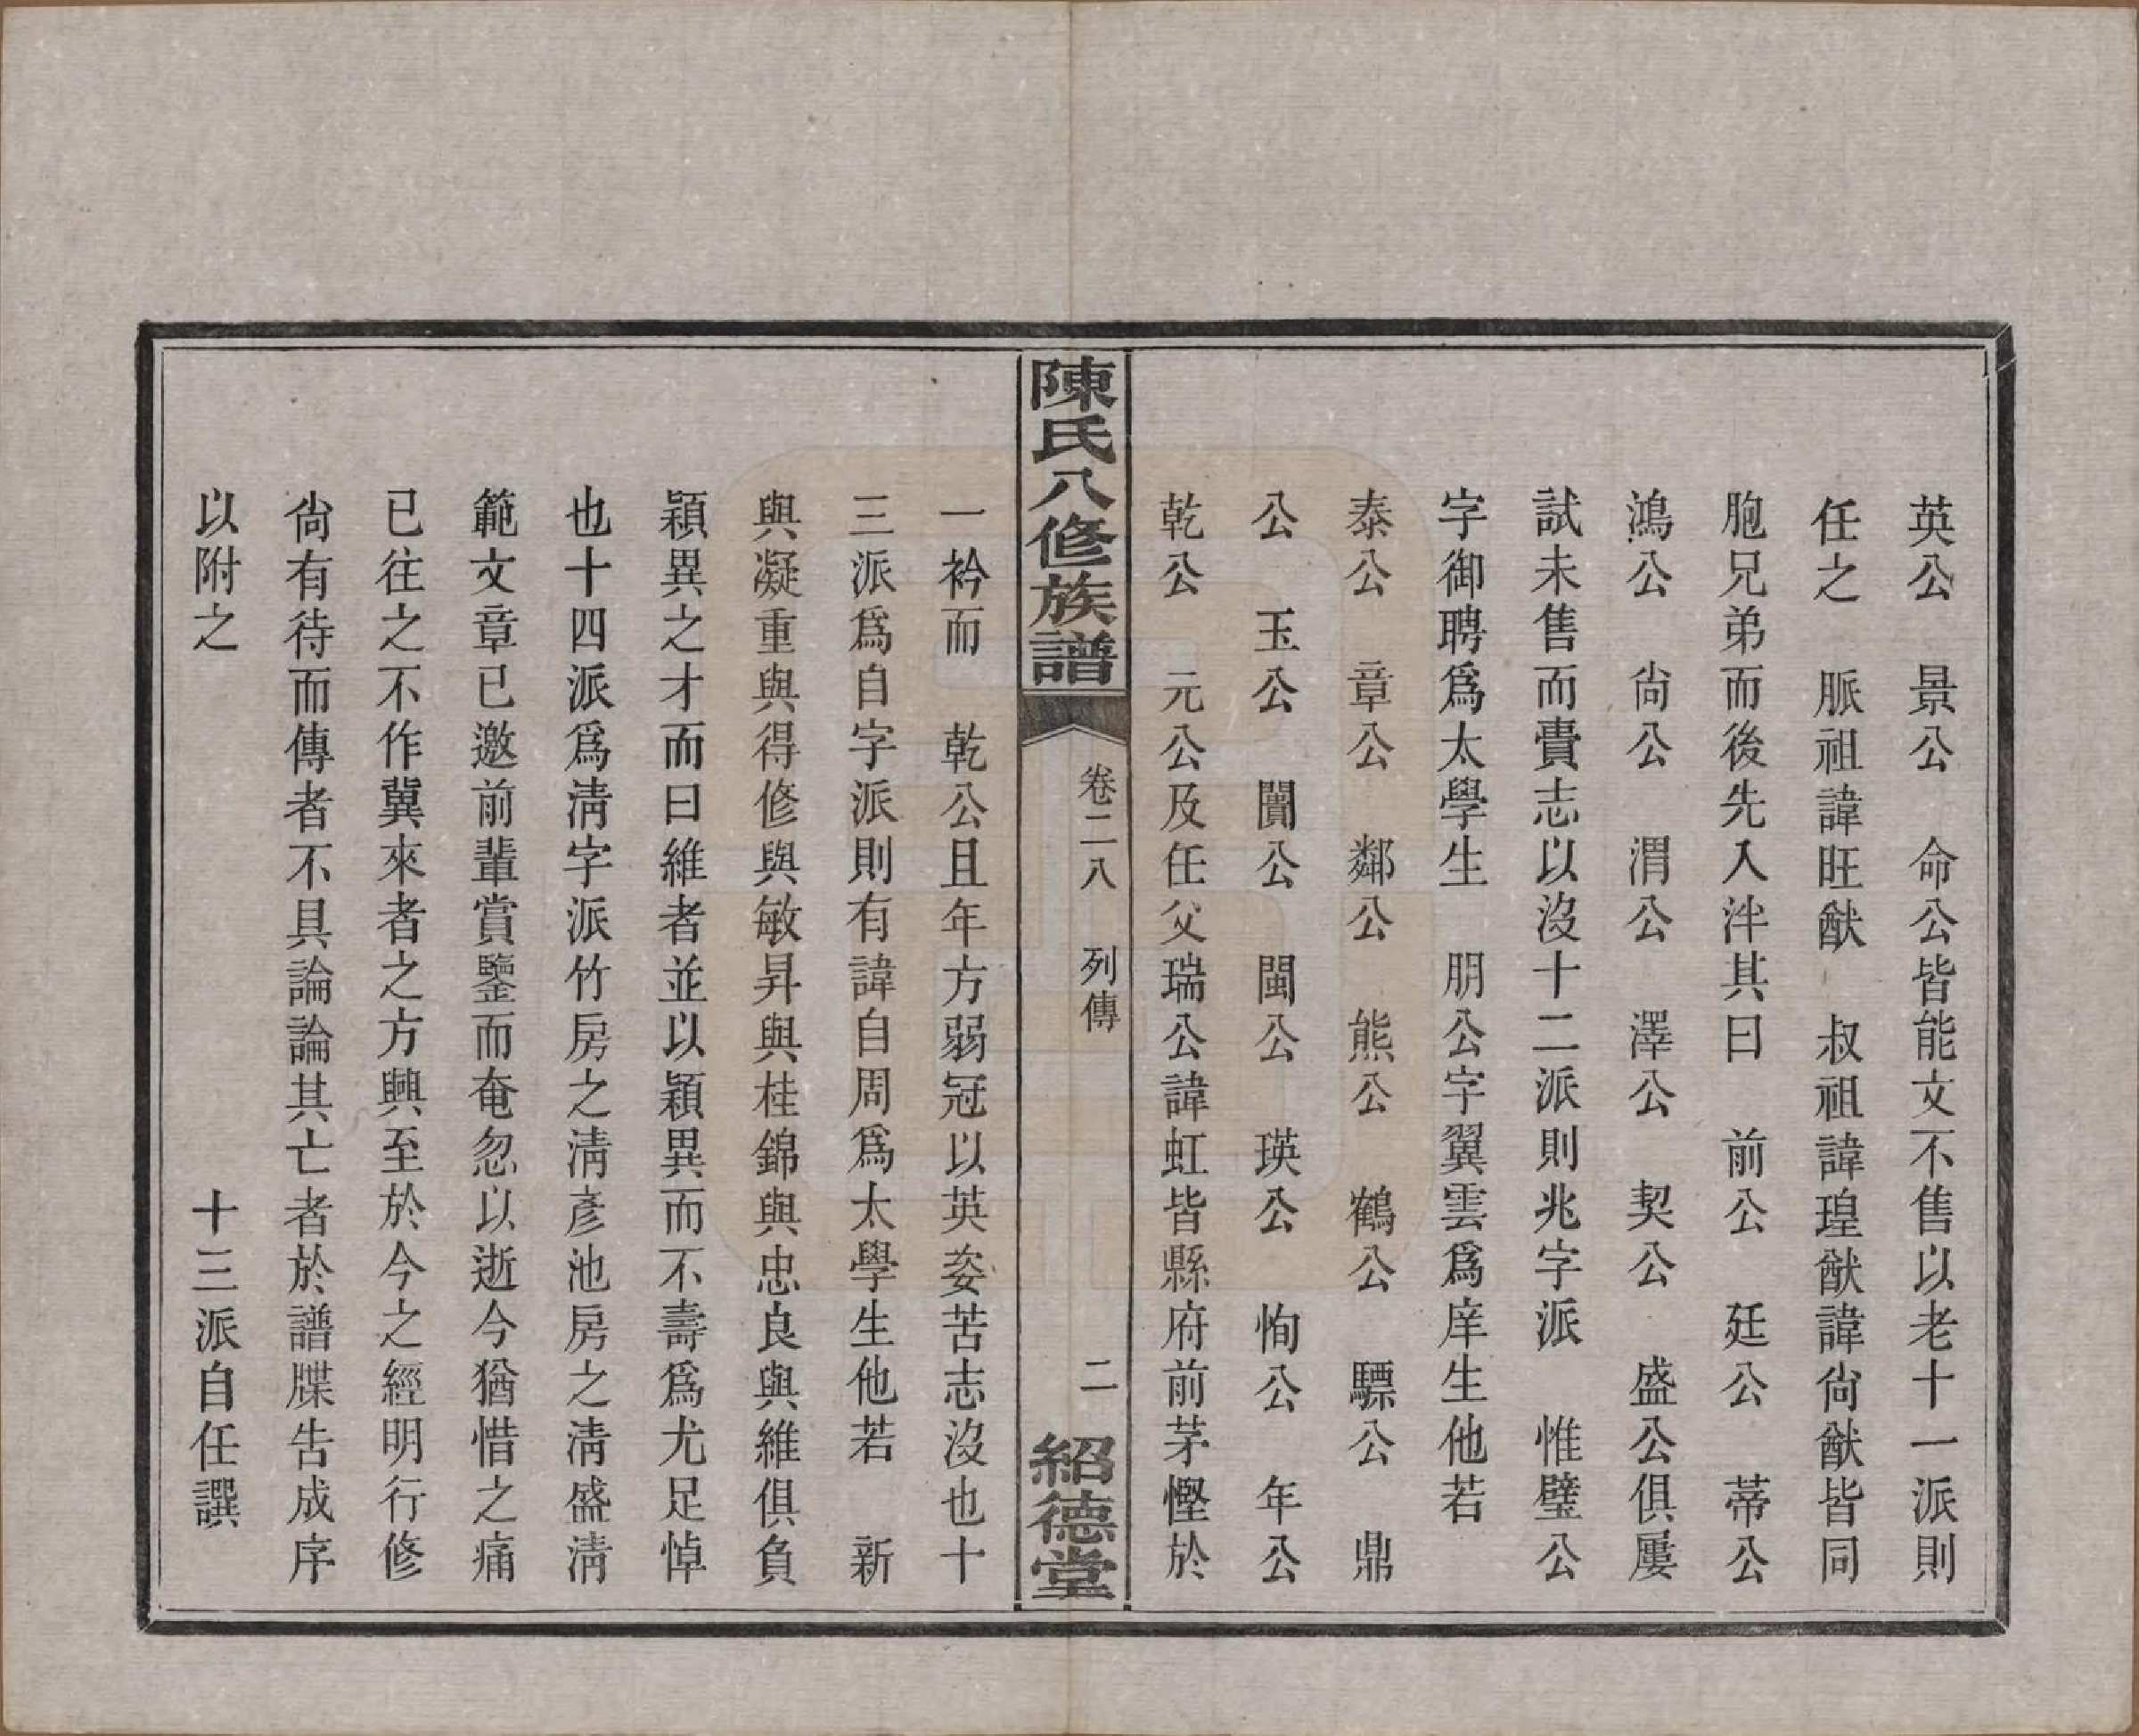 英公　景公　命公皆能文不售以老十一派則
任之　脈祖諱旺猷　叔祖諱瑝猷諱尙猷皆同
胞兄弟而後先入泮其曰　前公　廷公　蒂公
鴻公　尙公　渭公　澤公　契公　盛公俱屢
試未售而賫志以沒十二派則兆字派　惟璧公
字御聘爲太學生　朋公字翼雲爲庠生他若
泰公　章公　鄰公　熊公　鶴公　驃公　鼎
公　玉公　闐公　閩公　瑛公　恂公　年公
乾公　元公及任父瑞公諱虹皆縣府前茅慳於
陳氏八修族譜　卷二八　列傳　二　紹德堂
一衿而　乾公且年方弱冠以英姿苦志沒也十
三派爲自字派則有諱自周爲太學生他若　新
與凝重與得修與敏昇與桂錦與忠良與維俱負
穎異之才而曰維者並以穎異而不壽爲尤足悼
也十四派爲淸字派竹房之淸彥池房之淸盛淸
範文章已邀前輩賞鑒而奄忽以逝今猶惜之痛
已往之不作冀來者之方興至於今之經明行修
尙有待而傳者不具論論其亡者於譜牒吿成序
以附之　十三派自任譔